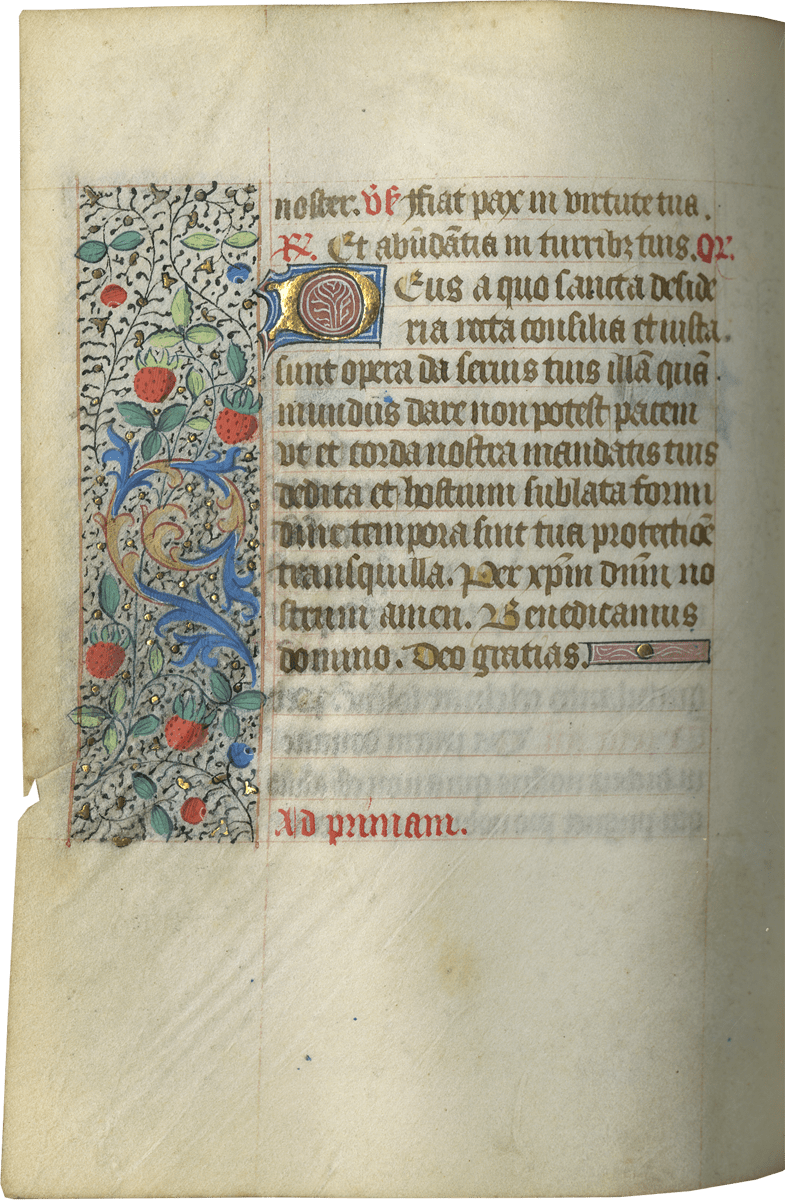 noster. v̄s̄ Fiat pax in virtute tua.
R. Et abūdātia in turribꝫ tuis. Or.
Deus a quo sancta deside
ria recta consilia et iusta.
sunt opera da seruis tuis illā quā
mundus dare non potest pacem
vt et corda nostra mandatis tuis
dedita et hostium sublata formi
dine tempora sint tua protectiōe
transquilla. Per xp̄m dn̄m no
strum amen. Benedicamus
domino. Deo gratias.
Ad primam.